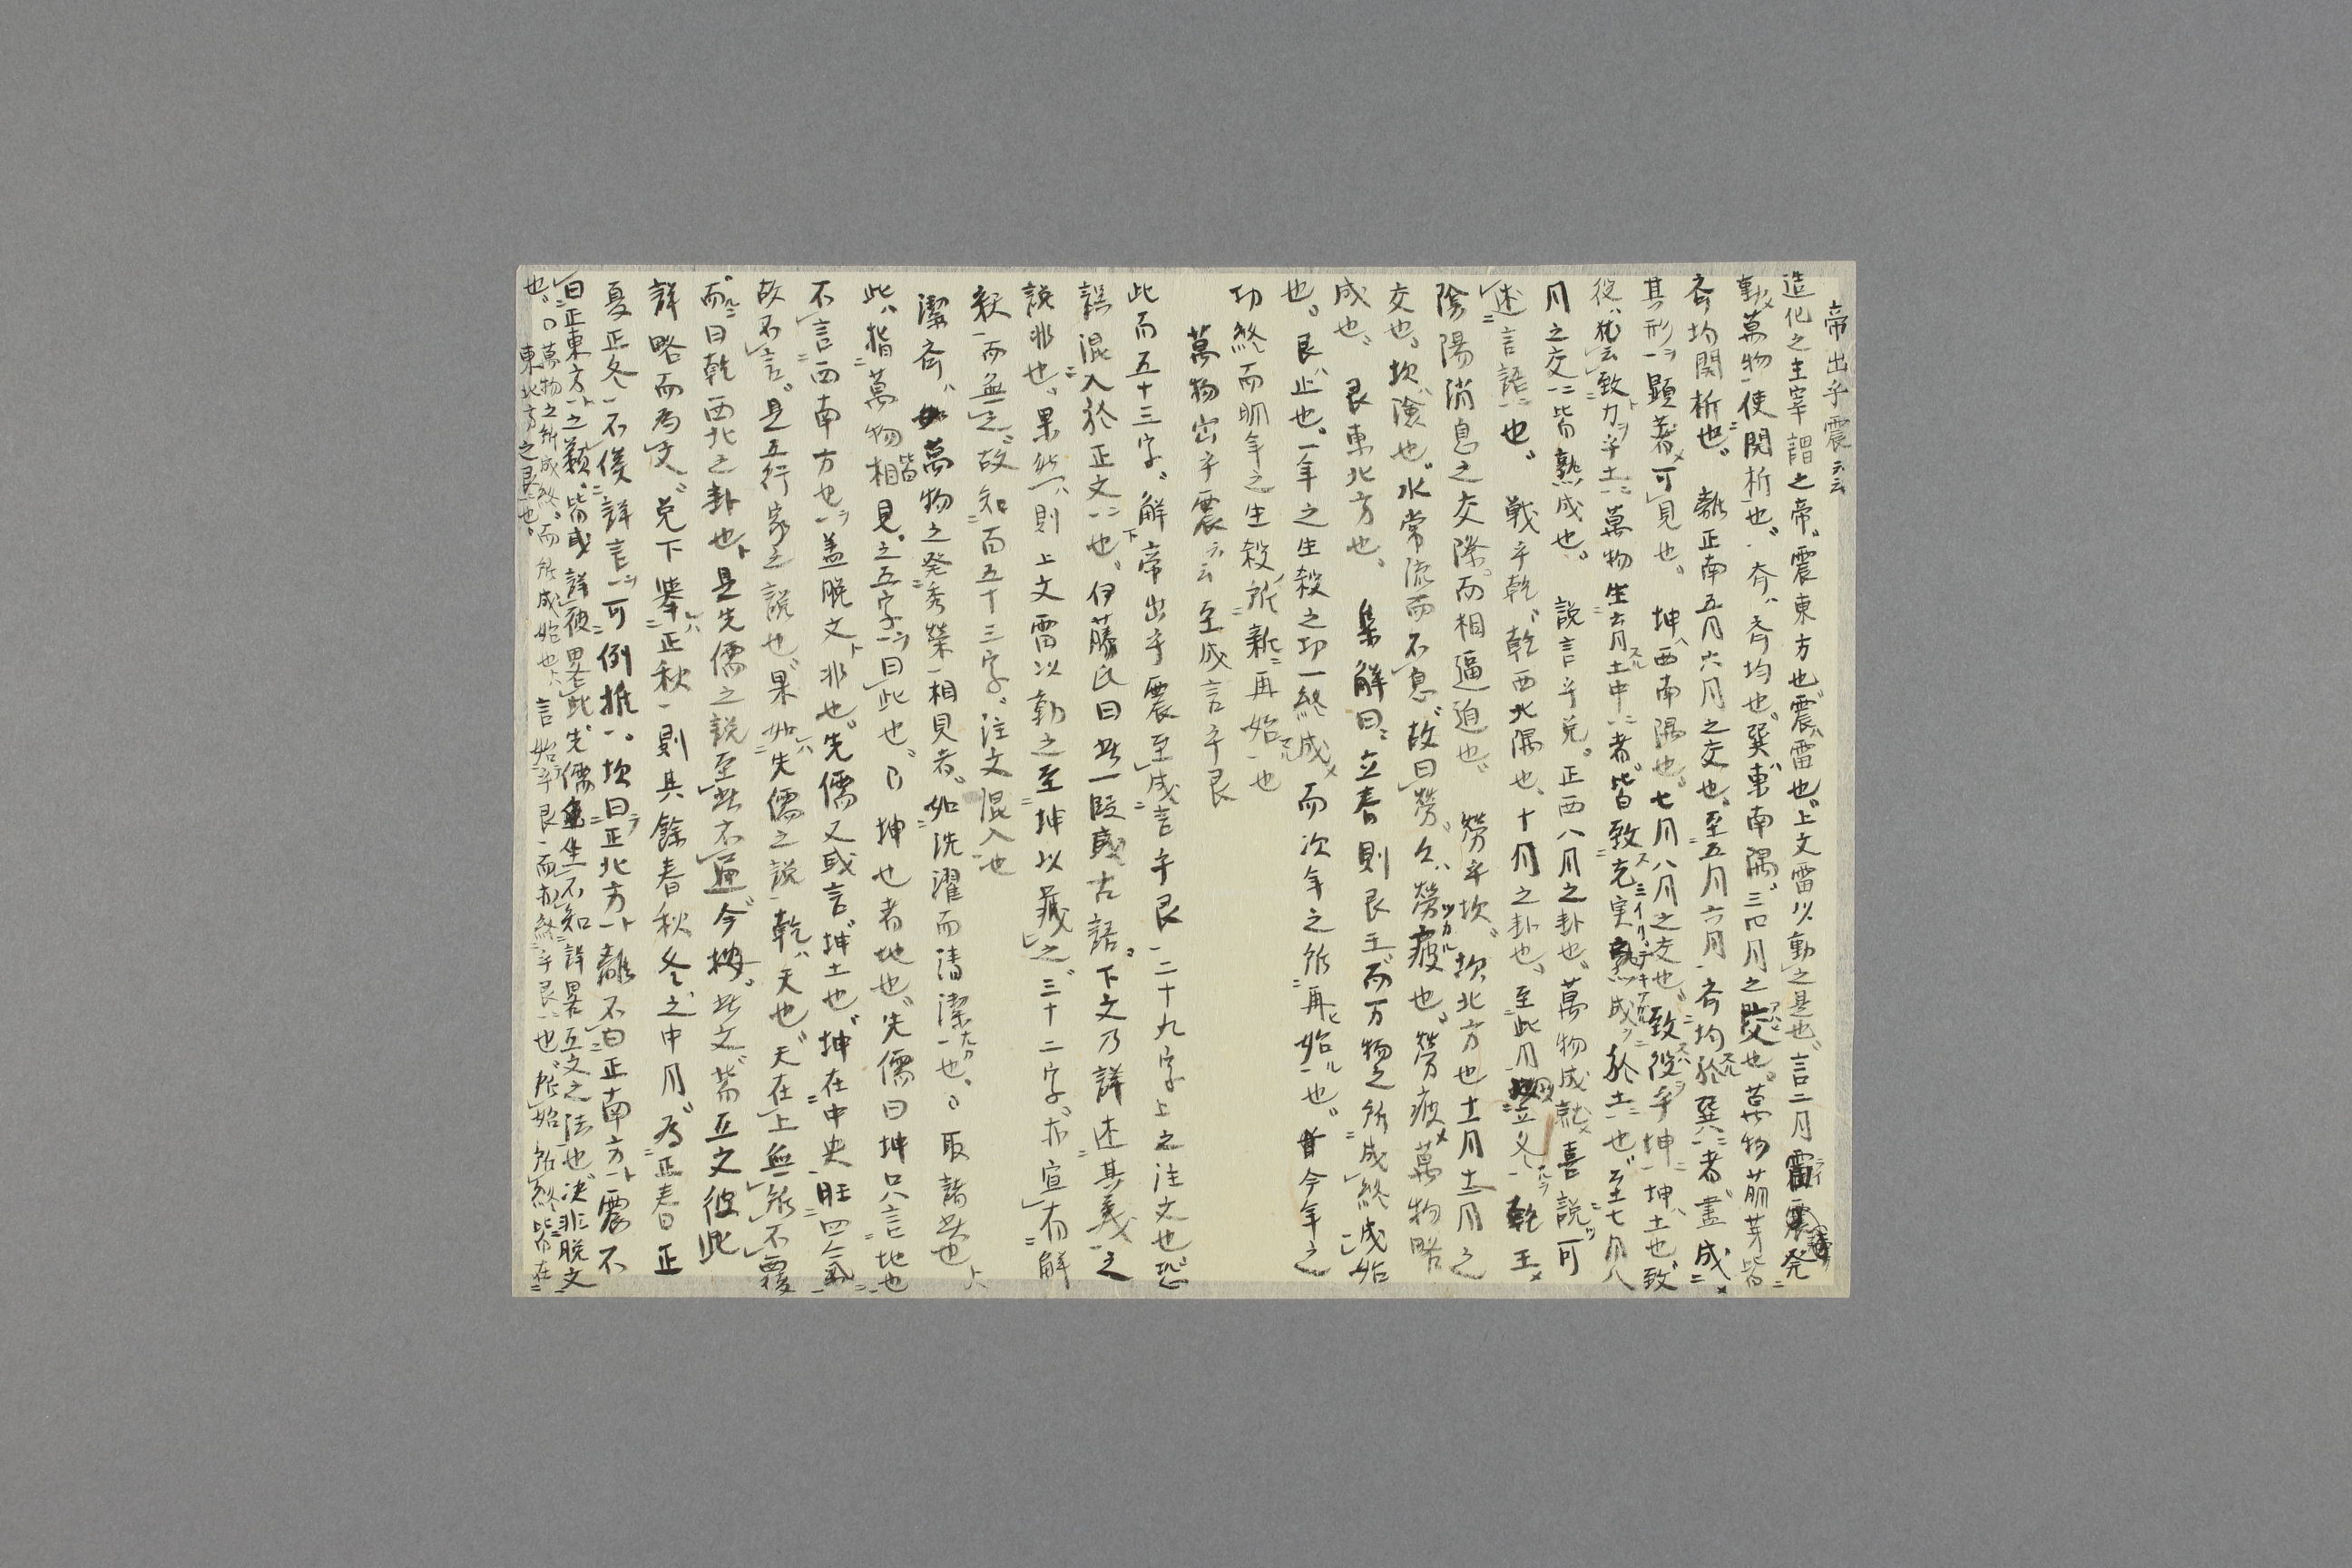 帝出乎震云云
造化之主宰謂之帝。震東方也。震、雷也。上文雷以動之是也。言二月雷発
動萬物使開析也。斉、斉均也。巽、東南隅。三四月之交也。萬物萠芽皆
斉均開析也。離正南五月六月之交也。至五月六月斉均於巽者盡成
其形顕著可見也。坤、西南隅也。七月八月之交也。致役乎坤坤、土也致
役、猶云致力乎土。萬物生土中者皆致充実熟成於土也。至七月八
月之交皆熟成也。説言乎兌。正西八月之卦也。萬物成就喜説可
述言語也。戦乎乾、乾西北隅也、十月之卦也、至此月立冬乾王
陰陽消息之交際。而相逼迫也。勞乎坎、坎北方也十一月十二月之
交也。坎、險也。水常流而不息。故曰勞。久、勞疲也。勞疲萬物略
成也。艮東北方也。集解曰立春則艮王。而万物之所成終成始
也。艮、止也。一年之生殺之功終成而次年之所再始也。今年之
功終而明年之生殺所新再始也
萬物出乎震云云至成言乎艮
此而五十三字。解帝出乎震至成言乎艮二十九字上之注文也恐
誤混入於正文也。伊藤氏曰此一段或古語。下文乃詳述其義之
說非也。果然則上文雷以動之至坤以蔵之三十二字。亦宣有解
釈而無之。故知百五十三字。注文混入也
潔斉、萬物之発秀榮相見者。如洗濯而清潔也。取諸此也
此、指萬物皆相見之五字曰此也。坤也者地也。先儒曰坤只言地也
不言西南方也蓋脱文非也。先儒又或言。坤土也。坤在中央旺四気
故不言。是五行家之説也。果如先儒之説乾、天也。天在上無所不覆
而曰乾西北之卦也是先儒之説至此不通。今按此文皆互文彼此
詳略而為文。兌下挙正秋則其餘春秋冬之中月。為正春日正
夏正冬不俟詳言可例推。坎曰正北方離不曰正南方震不
曰正東方之類皆或詳彼畧此。先儒不知詳畧互文之法也決非脱文
也。萬物之所成終而所成始也言始乎艮而亦終乎艮也。所始所終皆在
東北方之艮也。